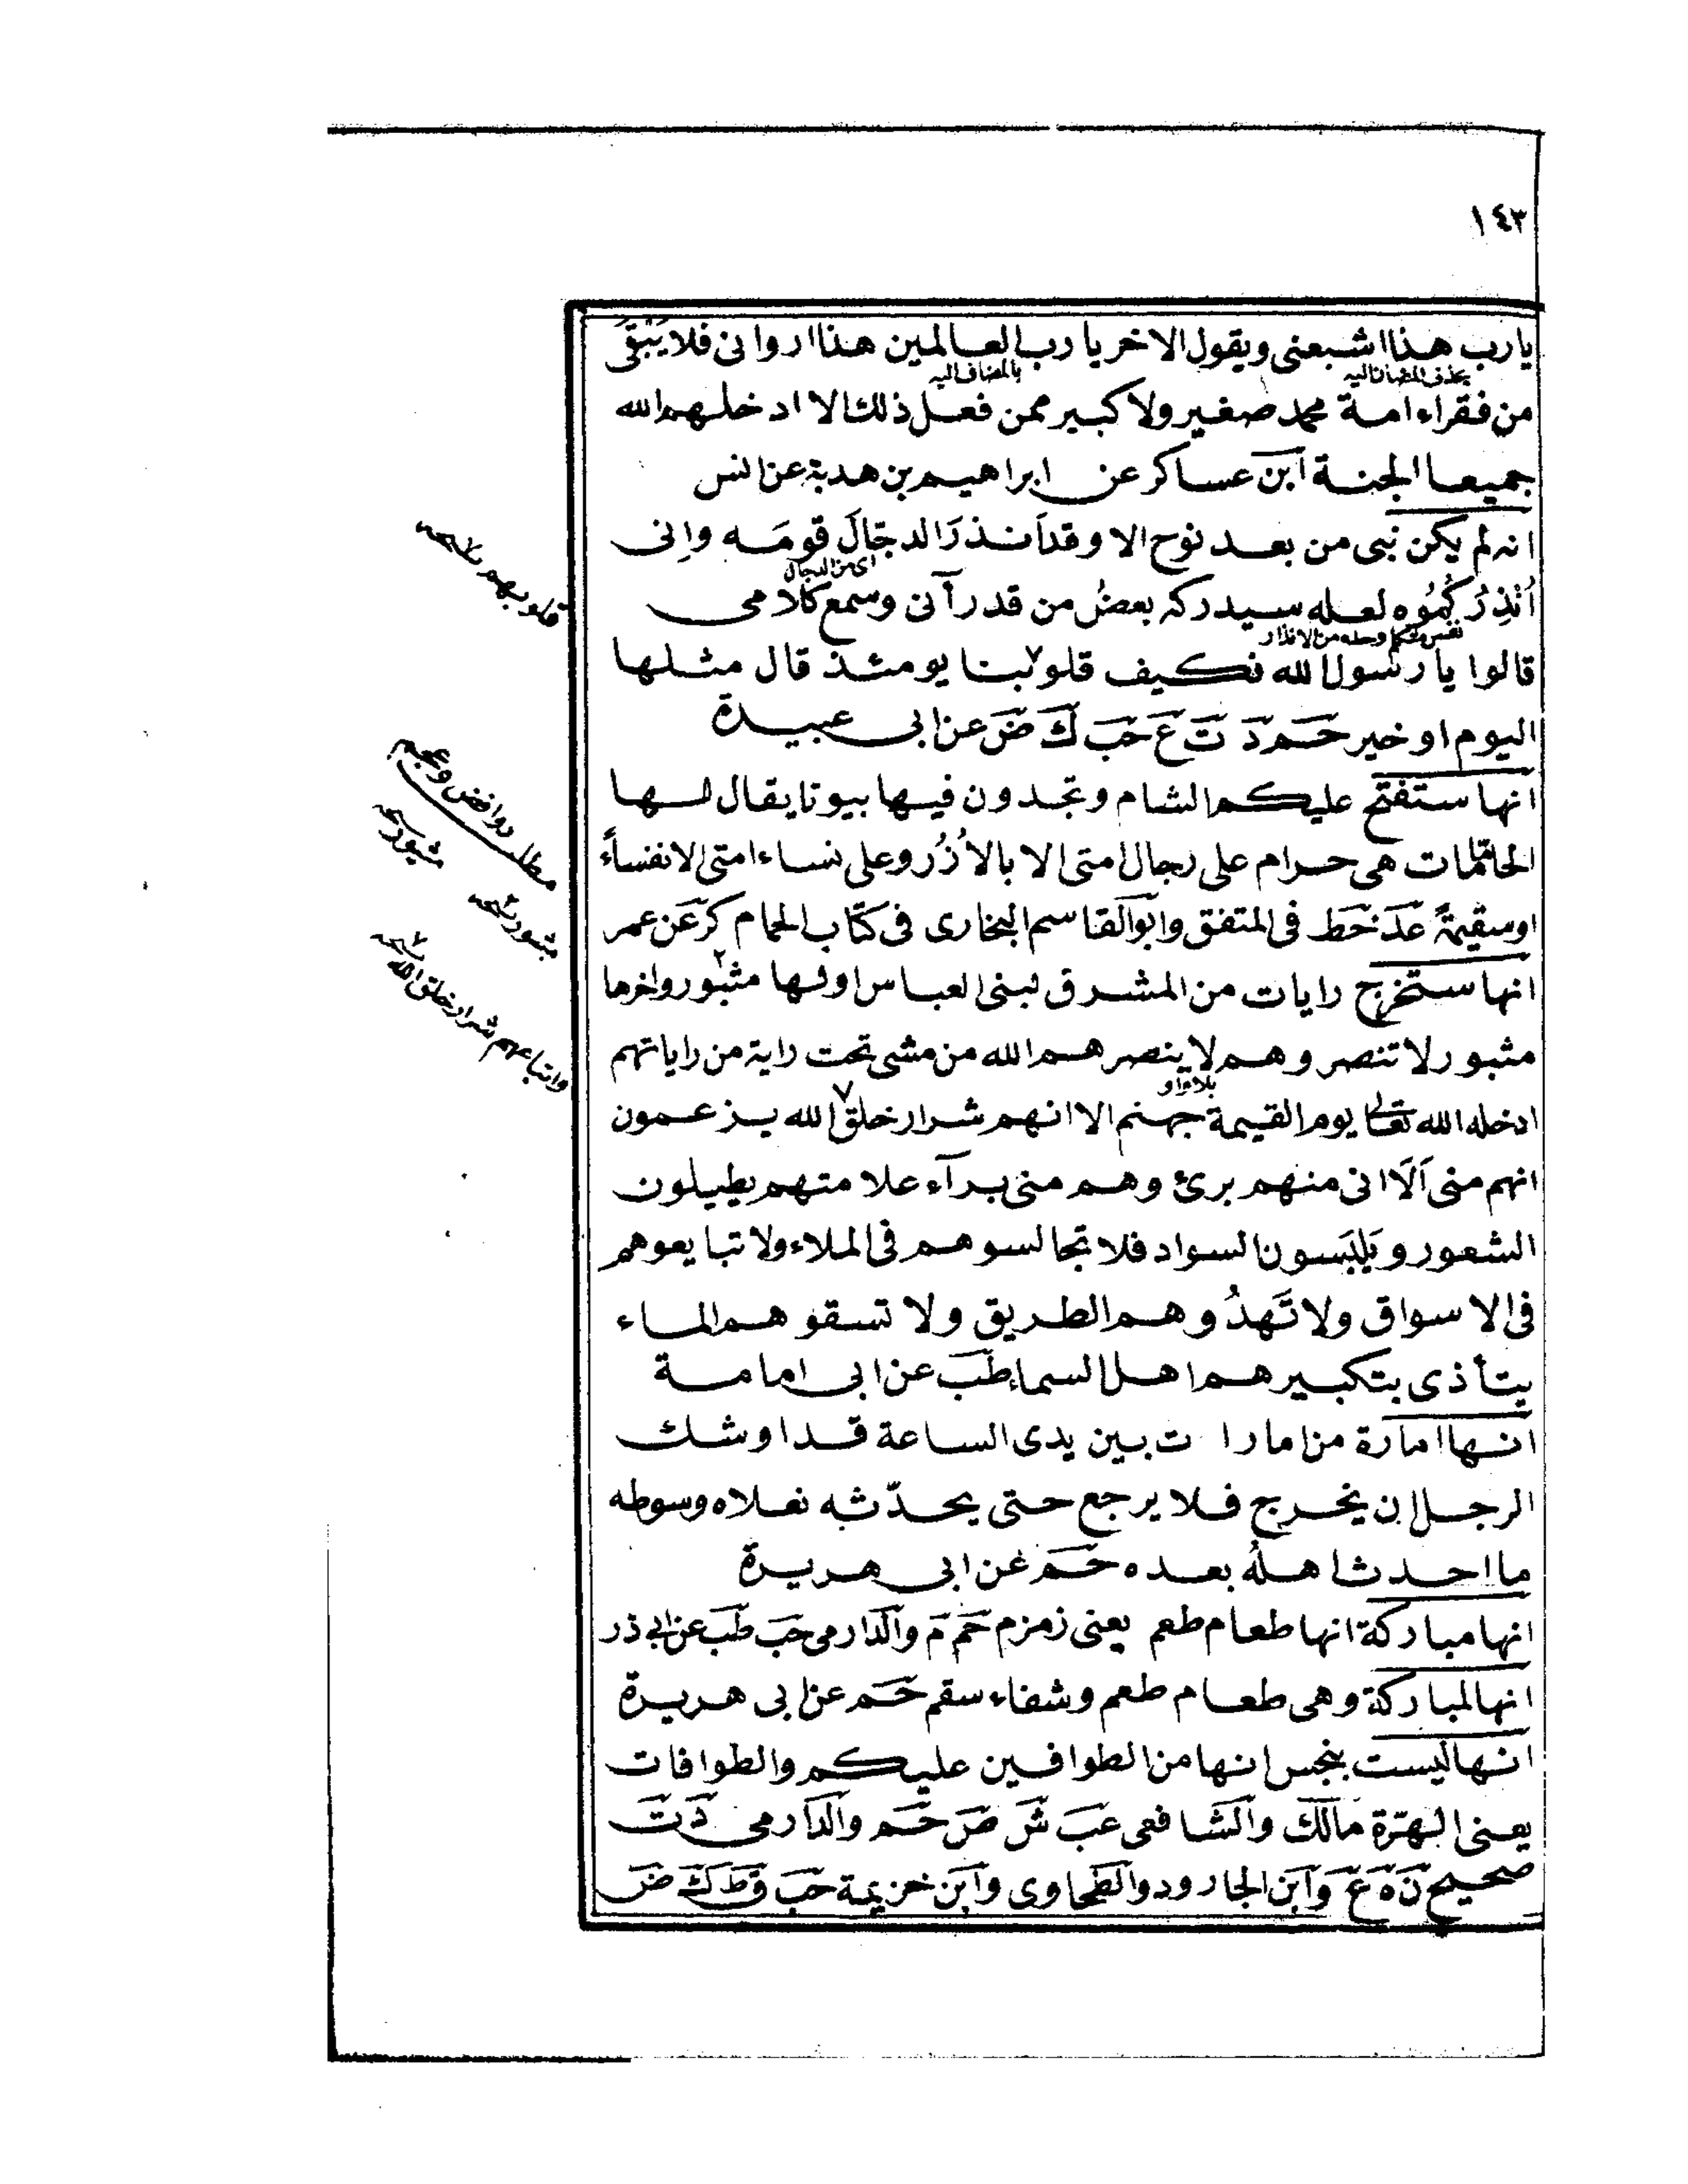 ١٤٣
يارب هذا اشبعنى ويقول الاخر يا رب العالمين هذا اروانى فلا يَبْقَى
بحذف المضاف اليه
بالمضاف اليه
من فقراء امة محمد صغير ولا كبير ممن فعل ذلك الا ادخلهم الله
جميعا الجنة ابن عساكر عن ابراهيم بن هدبة عن انس
انه لم يكن نبى من بعد نوح الا وقد اَنذرَ الدجّالَ قومَه واِنى
اى من الدجال
اُنْذِرُكُمُوه لعله سيدركه بعضُ من قدرآنى وسمع كلامى
نفس متكلم وحده من الانذار
قالوا يا رسول الله فكيف قلوبنا يومئذ قال مثلها
اليوم او خير حَم دَ تَ عَ حَبَ كَ ضَ عن ابى عبيدة
انها ستفتح عليكم الشام وتجدون فيها بيوتا يقال لها
الحمّامات هى حرام على رجال امتى الا بالاُزُر وعلى نساء امتى الا نفساءً
او سقيمةً عَدَ خَط فى المتفق وابو القاسم البخارى فى كتاب الحمام كَرَ عَن عمر
انها ستخرج رايات من المشرق لبنى العباس اولها مثبور واخرها
مثبور لا تنصروهم لا ينصرهم الله من مشى تحت راية من راياتهم
بلا واو
ادخله الله تعالى يوم القيمة جهنم الا انهم شرار خلق الله يزعمون
انهم منى اَلَا انى منهم برئ وهم منى برآء علامتهم يطيلون
الشعور ويَلبَسون السواد فلا تجالسوهم فى الملاء ولا تبايعوهم
فى الاسواق ولا تَهدُوهم الطريق ولا تسقوهم الماء
يتأذى بتكبيرهم اهل السماء طَبَ عن ابى امامة
انها امارة من امارات بين يدى الساعة قد اوشك
الرجل ان يخرج فلا يرجع حتى يحدّثه نعلاه وسوطه
ما احدث اهلهُ بعده حَم عن ابى هريرة
انها مباركة انها طعام طعم يعنى زمزم حَم مَ والدارمى حَبَ طَبَ عن ابى ذر
انها لمباركة وهى طعام طعم وشفاء سقم حَم عن ابى هريرة
انها ليست بنجس انها من الطوافين عليكم والطوافات
يعنى الهرّة مالك والشافعى عَبَ شَ صَ حَم والدارمى دَ تَ
صحيح نَ ه عَ وابن الجارود والطحاوى وابن خزيمة حَبَ قَط كَ ضَ
قلوبهم نسخه
مطلب روافض وعجم
مثبور نسخه
مثبور نسخه
واتباعهم شرار خلق الله نسخه